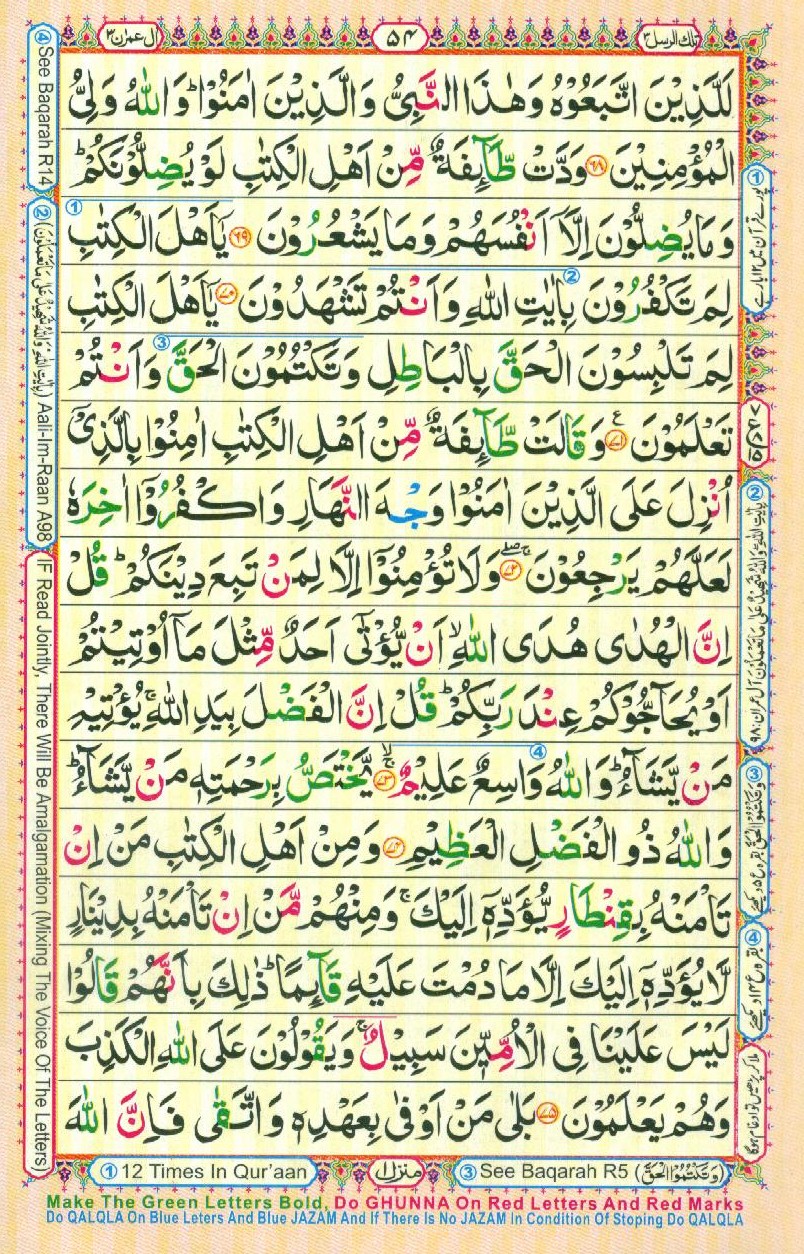 تلك الرسل ٣
٥٤
اٰل عمرٰن ٣
لَلَّذِيْنَ اتَّبَعُوْهُ وَهٰذَا النَّبِيُّ وَالَّذِيْنَ اٰمَنُوْا ؕ وَاللّٰهُ وَلِيُّ
الْمُؤْمِنِيْنَ ﴿۶۸﴾ وَدَّتْ طَّآئِفَةٌ مِّنْ اَهْلِ الْكِتٰبِ لَوْ يُضِلُّوْنَكُمْ ؕ
وَمَا يُضِلُّوْنَ اِلَّاۤ اَنْفُسَهُمْ وَمَا يَشْعُرُوْنَ ﴿۶۹﴾ يٰۤاَهْلَ الْكِتٰبِ
لِمَ تَكْفُرُوْنَ بِاٰيٰتِ اللّٰهِ وَاَنْتُمْ تَشْهَدُوْنَ ﴿۷۰﴾ يٰۤاَهْلَ الْكِتٰبِ
لِمَ تَلْبِسُوْنَ الْحَقَّ بِالْبَاطِلِ وَتَكْتُمُوْنَ الْحَقَّ وَاَنْتُمْ
تَعْلَمُوْنَ ﴿۷۱﴾ ع وَقَالَتْ طَّآئِفَةٌ مِّنْ اَهْلِ الْكِتٰبِ اٰمِنُوْا بِالَّذِيْۤ
اُنْزِلَ عَلَى الَّذِيْنَ اٰمَنُوْا وَجْهَ النَّهَارِ وَاكْفُرُوْۤا اٰخِرَهٗ
لَعَلَّهُمْ يَرْجِعُوْنَ ﴿۷۲﴾ وَلَا تُؤْمِنُوْۤا اِلَّا لِمَنْ تَبِعَ دِيْنَكُمْ ؕ قُلْ
اِنَّ الْهُدٰى هُدَى اللّٰهِ ۙ اَنْ يُّؤْتٰۤى اَحَدٌ مِّثْلَ مَاۤ اُوْتِيْتُمْ
اَوْ يُحَآجُّوْكُمْ عِنْدَ رَبِّكُمْ ؕ قُلْ اِنَّ الْفَضْلَ بِيَدِ اللّٰهِ ۚ يُؤْتِيْهِ
مَنْ يَّشَآءُ ؕ وَاللّٰهُ وَاسِعٌ عَلِيْمٌ ﴿۷۳﴾ يَّخْتَصُّ بِرَحْمَتِهٖ مَنْ يَّشَآءُ ؕ
وَاللّٰهُ ذُو الْفَضْلِ الْعَظِيْمِ ﴿۷۴﴾ وَمِنْ اَهْلِ الْكِتٰبِ مَنْ اِنْ
تَاْمَنْهُ بِقِنْطَارٍ يُّؤَدِّهٖۤ اِلَيْكَ ۚ وَمِنْهُمْ مَّنْ اِنْ تَاْمَنْهُ بِدِيْنَارٍ
لَّا يُؤَدِّهٖۤ اِلَيْكَ اِلَّا مَا دُمْتَ عَلَيْهِ قَآئِمًا ؕ ذٰلِكَ بِاَنَّهُمْ قَالُوْا
لَيْسَ عَلَيْنَا فِى الْاُمِّيّٖنَ سَبِيْلٌ ۚ وَيَقُوْلُوْنَ عَلَى اللّٰهِ الْكَذِبَ
وَهُمْ يَعْلَمُوْنَ ﴿۷۵﴾ بَلٰى مَنْ اَوْفٰى بِعَهْدِهٖ وَاتَّقٰى فَاِنَّ اللّٰهَ
① پورے قرآن میں ۱۲ بار ہے
② بِاٰيٰتِ اللّٰهِ وَاللّٰهُ شَهِيْدٌ عَلٰى مَا تَعْمَلُوْنَ آل عمران: ٩٨
③ وَتَكْتُمُوا الْحَقَّ بقره ع ٥ دیکھئے
④ بقره ع ١٤ دیکھئے
ملا کر پڑھیں تو ادغام ہوگا
④ See Baqarah R14
② (بِاٰيٰتِ اللّٰهِ وَاللّٰهُ شَهِيْدٌ عَلٰى مَا تَعْمَلُوْنَ) Aali-Im-Raan A98
IF Read Jointly, There Will Be Amalgamation (Mixing The Voice Of The Letters)
① 12 Times In Qur'aan
منزل ١
③ See Baqarah R5 (وَتَكْتُمُوا الْحَقَّ)
Make The Green Letters Bold, Do GHUNNA On Red Letters And Red Marks
Do QALQLA On Blue Leters And Blue JAZAM And If There Is No JAZAM In Condition Of Stoping Do QALQLA